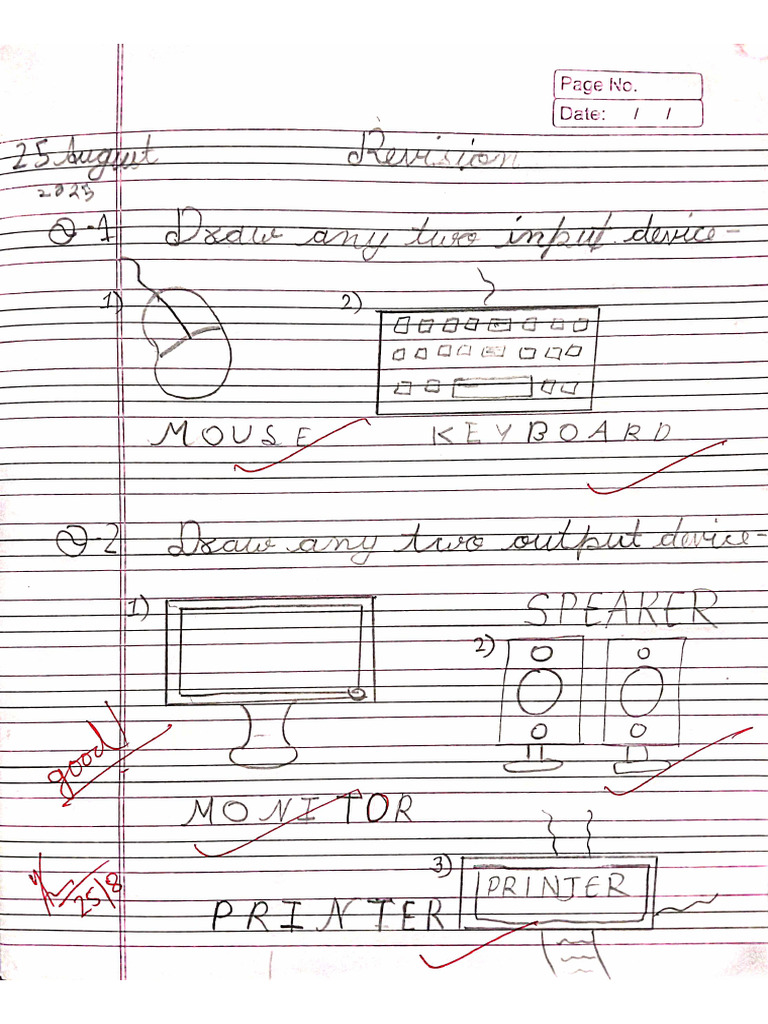 Page No.
Date: / /
25 August Revision
2025
Q-1 Draw any two input device-
1) 2)
MOUSE KEYBOARD
Q-2 Draw any two output device-
1) SPEAKER
2)
good
MONITOR
3)
PRINTER
PRINTER
25/8